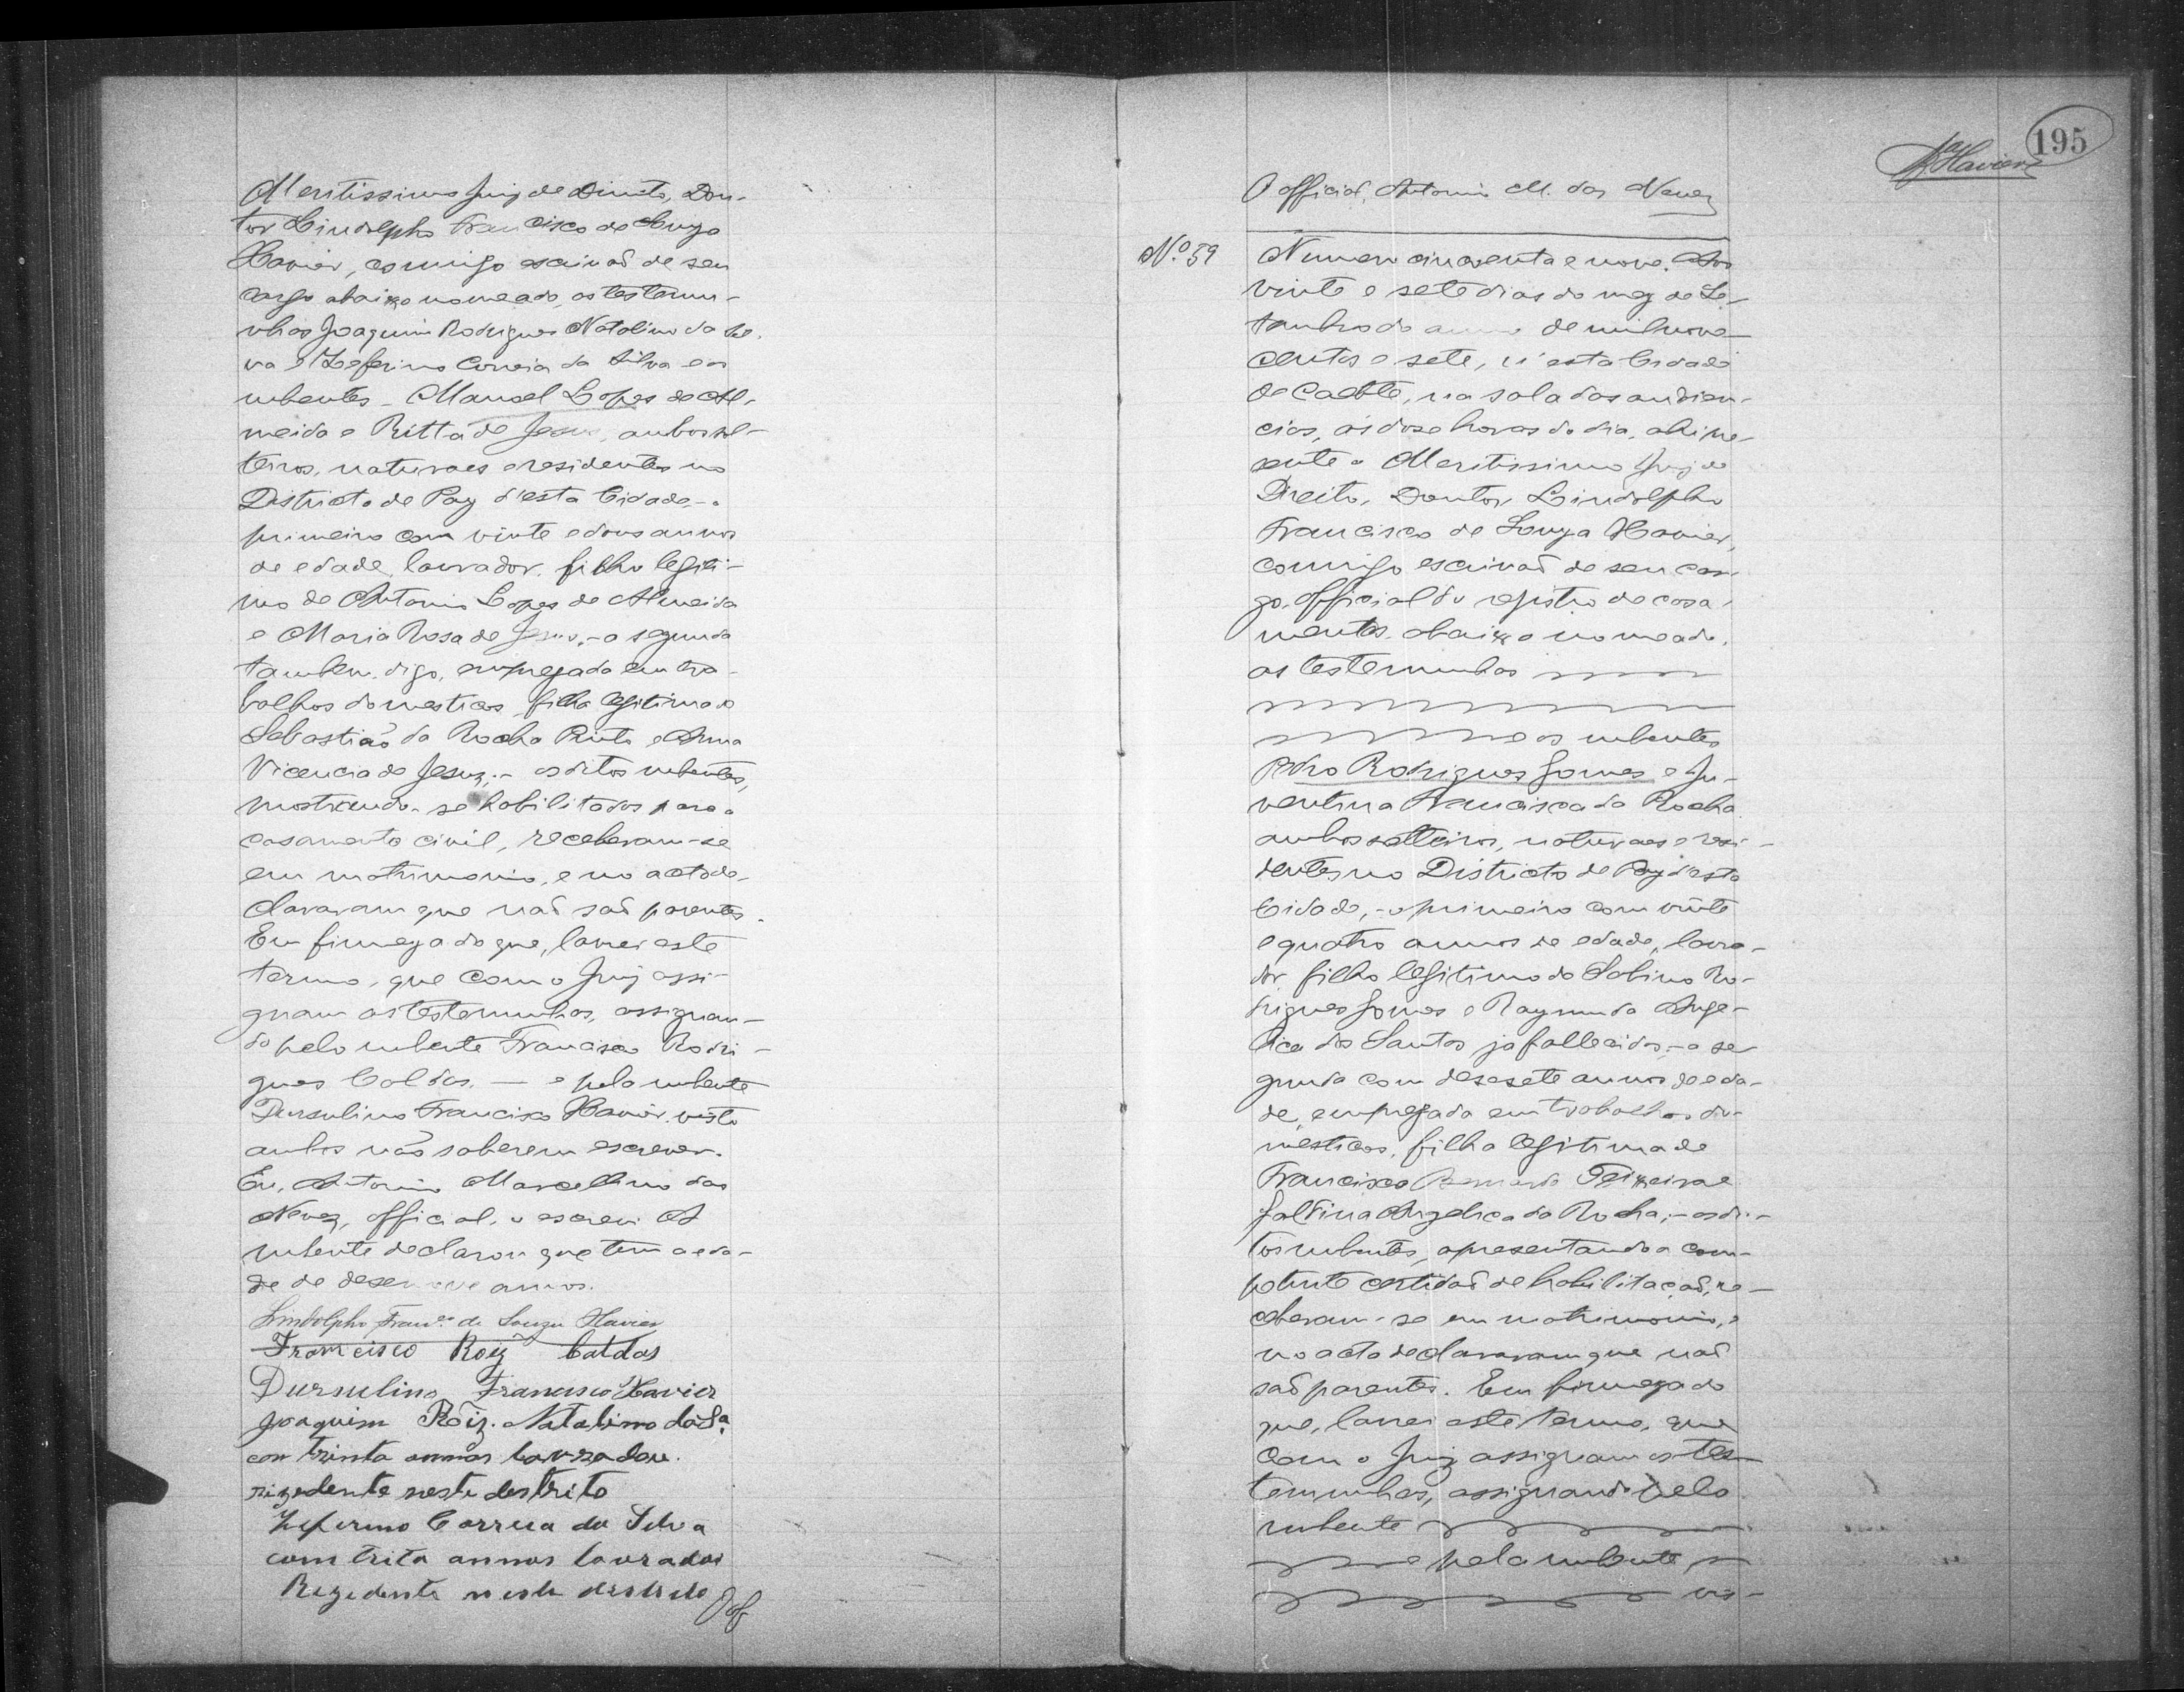 Meritissimo Juiz de Direito, Dou-
tor Lindolpho Francisco de Souza
Xavier, comigo escrivaõ de seu
cargo abaixo nomeado, as testemu-
nhas Joaquim Rodrigues Natalino da Sil-
va e Zeferino Correia da Silva e os
nubentes - Manoel Lopes de Al-
meida e Ritta de Jesus, ambos sol-
teiros, naturaes e residentes no
Districto de Paz d'esta Cidade, - o
primeiro com vinte e dous annos
de edade, lavrador, filho legiti-
mo de Antonio Lopes de Almeida
e Maria Rosa de Jesus, - a segunda
tambem, digo, empregada em tra-
balhos domesticos, filha legitima de
Sebastião da Rocha Pinto e Anna
Vicencia de Jesuz; - os ditos nubentes,
mostrando-se habilitados para o
casamento civil, receberam-se
em matrimonio, e no acto de-
clararam que naõ saõ parentes.
Em firmeza do que, lavrei este
termo, que com o Juiz assi-
gnam as testemunhas, assignan-
do pelo nubente Francisco Rodri-
gues Caldas, — e pela nubente
Dursulino Francisco Xavier, visto
ambos não saberem escrever.
Eu, Antonio Marcellino das
Nevez, official, o escrevi. A
nubente declarou que tem a eda-
de de desenove annos.
Lindolpho Fran.co de Souza Xavier
Francisco Roiz Caldas
Dursulino Francisco Xavier
Joaquim Roiz. Natalino da S.a
con trinta annos lavrador.
rizedente neste destrito
Zeferino Correia da Silva
com trita annos lavrador
Rezedente neste destrito
195
Xavier
O official, Antonio M. das Nevez
N.o 59
Numero cincoenta e nove. Aos
vinte e sete dias do mez de Se-
tembro do anno de mil nove-
centos e sete, n'esta Cidade
de Caethé, na sala das audien-
cias, ás dose horas do dia, ahi pre-
sente o Meritissimo Juiz de
Direito, Doutor Lindolpho
Francisco de Souza Xavier,
comigo escrivaõ de seu car-
go, official do registro de casa-
mentos, abaixo nomeado,
as testemunhas
e os nubentes
Pedro Rodrigues Gomes e Ju-
ventina Francisca da Rocha
ambos solteiros, naturaes e resi-
dentes no Districto de Paz d'esta
Cidade, - o primeiro com vinte
e quatro annos de edade, lavra-
dor, filho legitimo de Sabino Ro-
drigues Gomes e Raymunda Ange-
lica dos Santos já fallecidos, - a se-
gunda com desesete annos de eda-
de, empregada em trabalhos do-
mesticos, filha legitima de
Francisco Bernardo Teixeira e
Galdina Angelica da Rocha; - os di-
tos nubentes, apresentando a com-
petente certidaõ de habilitaçaõ, re-
ceberam-se em matrimonio, e
no acto declararam que naõ
saõ parentes. Em firmeza do
que, lavrei este termo, que
com o Juiz assignam as tes-
temunhas, assignando pelo
nubente
e pela nubente
vis-